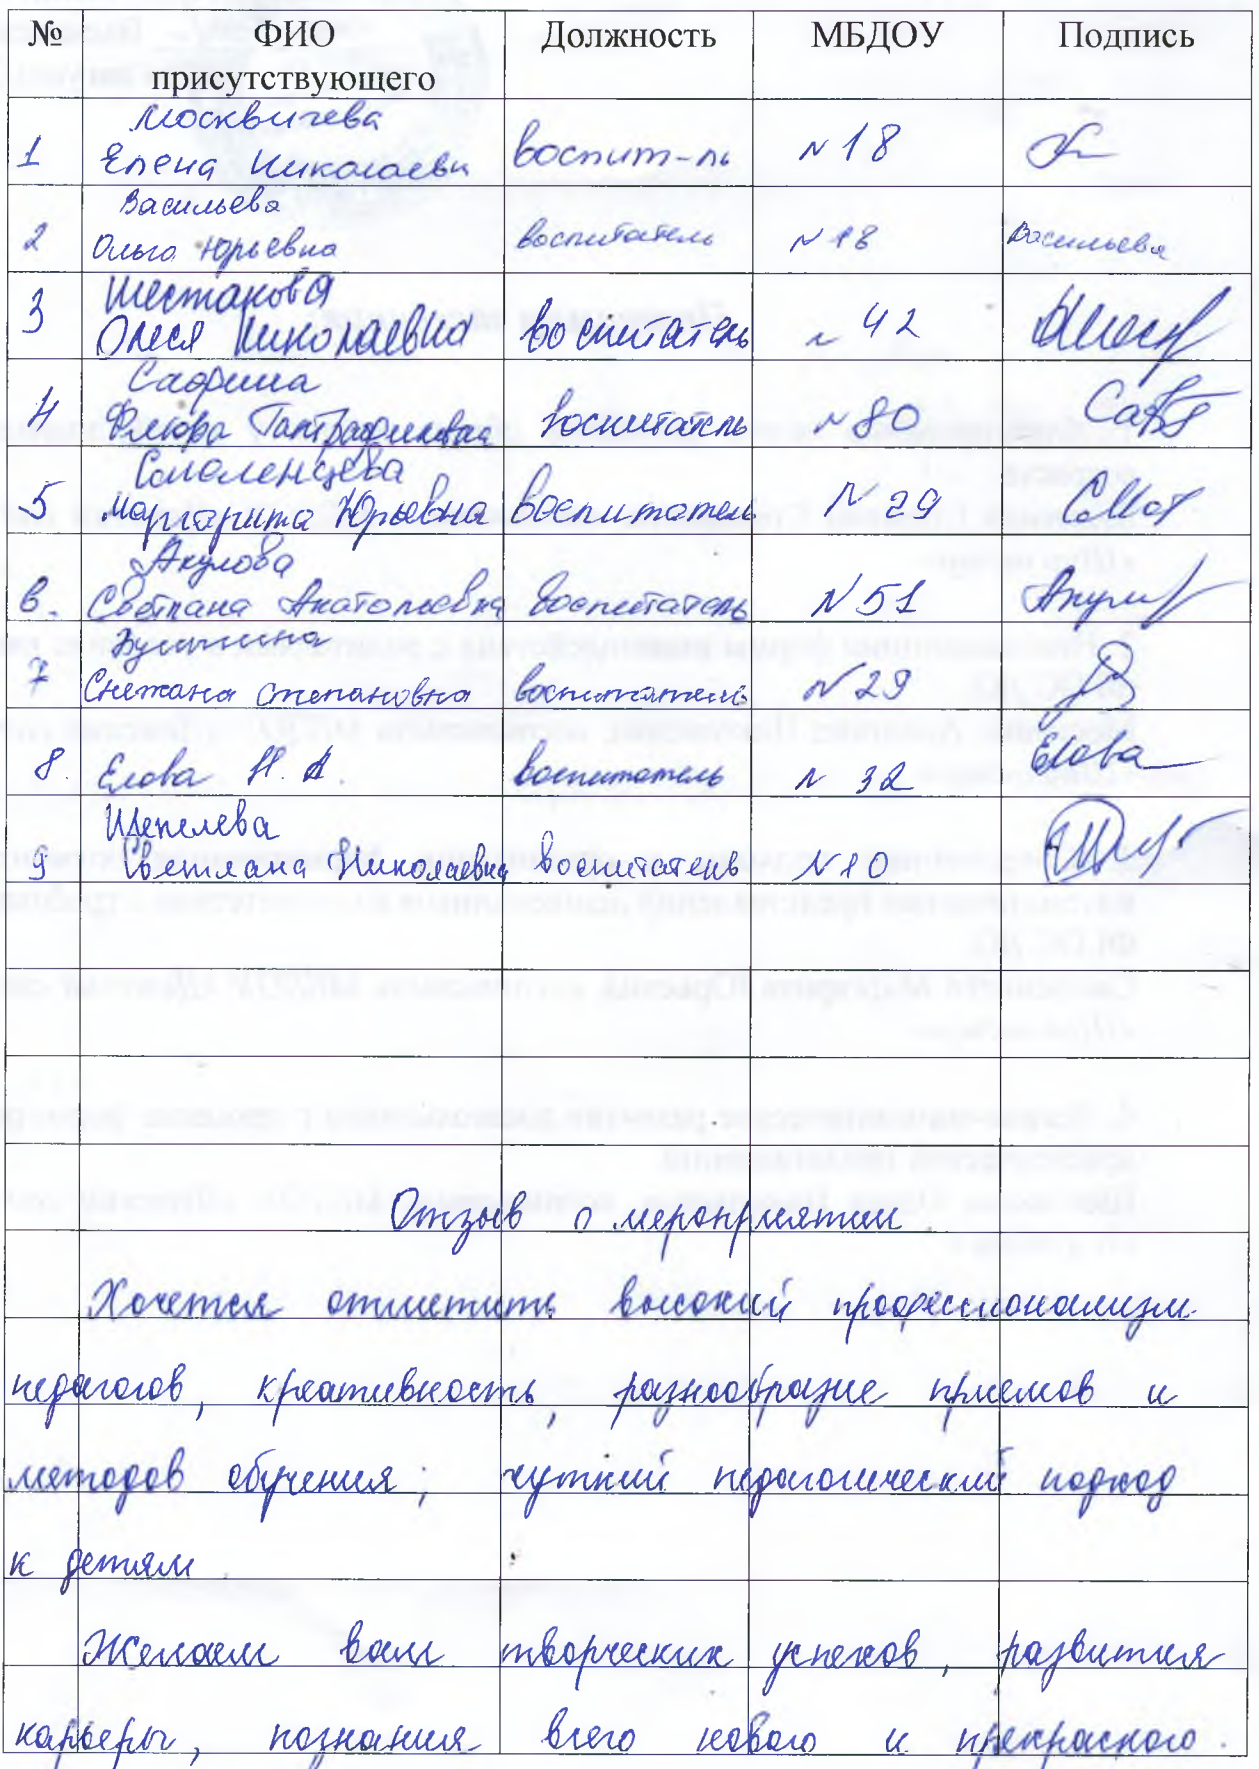 № ФИО Должность МБДОУ Подпись
присутствующего
Москвичева
1 Елена Николаевн воспит-ль № 18
Васильева
2 Ольга Юрьевна воспитатель № 18 Васильева
Шестакова
3 Олеся Николаевна воспитатель № 42
Сафина
4 Флюра воспитатель № 80
Смоленцева
5 Маргарита Юрьевна воспитатель № 29
Акулова
6. Светлана Анатольевна воспитатель № 51
7 Снежана Степановна воспитатель № 29
8. Елова Н. А. воспитатель № 32 Елова
Шепелева
9 Светлана Николаевна воспитатель № 10
Отзыв о мероприятии
Хочется отметить высокий профессионализм
педагогов, креативность, разнообразие приемов и
методов обучения; чуткий педагогический подход
к детям
Желаем вам творческих успехов, развития
карьеры, познания всего нового и прекрасного.